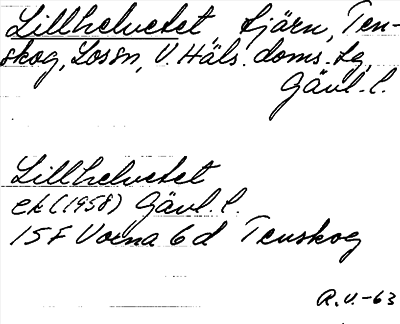 Lillhelvetet tjärn, Ten-
skog, Lossn, V. Häls. doms. tg,
Gävl. l.
Lillhelvetet
ek (1958) Gävl. l.
15F Voxna 6d Tenskog
R.V.-63